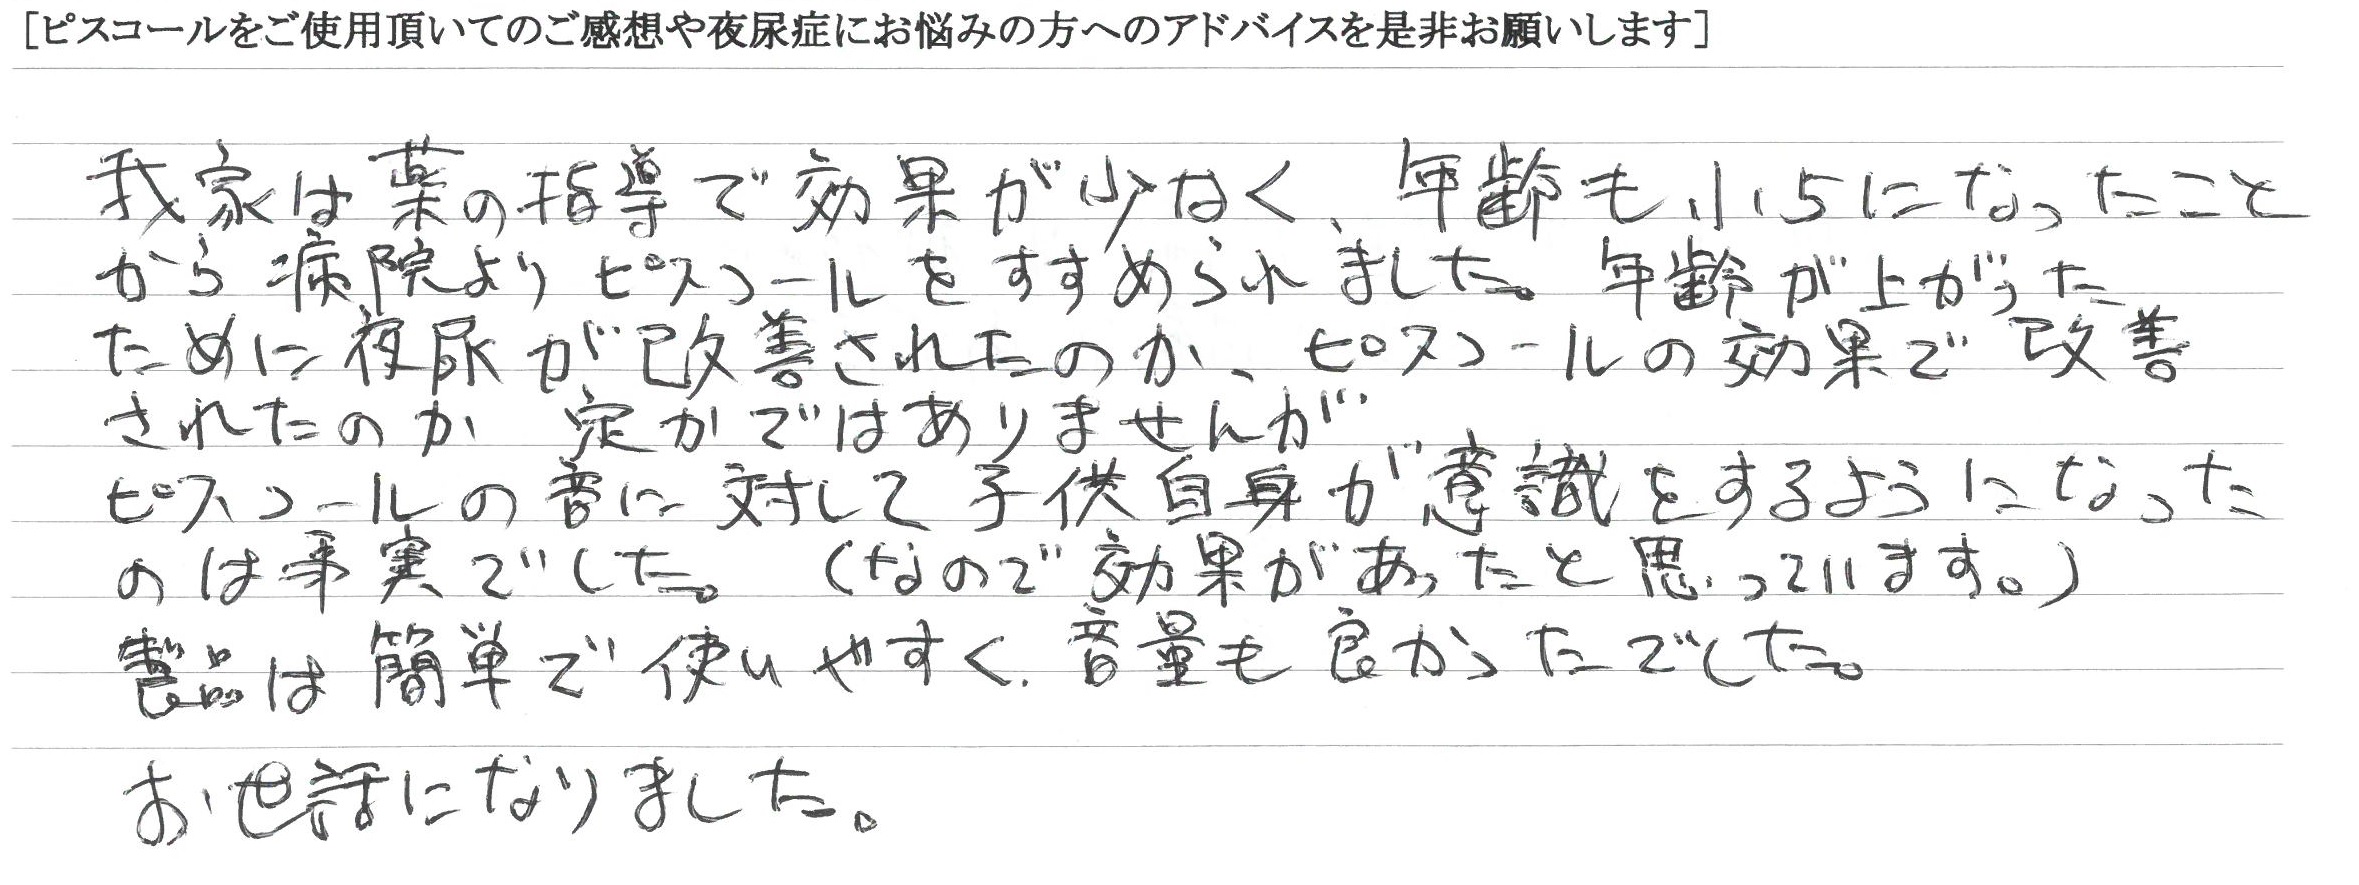 [ピスコールをご使用頂いてのご感想や夜尿症にお悩みの方へのアドバイスを是非お願いします]
我家は薬の指導で効果が少なく、年齢も小5になったこと
から病院よりピスコールをすすめられました。年齢が上がった
ために夜尿が改善されたのか、ピスコールの効果で改善
されたのか定かではありませんが
ピスコールの音に対して子供自身が意識をするようになった
のは事実でした。(なので効果があったと思っています。)
製品は簡単で使いやすく、音量も良かったでした。
お世話になりました。